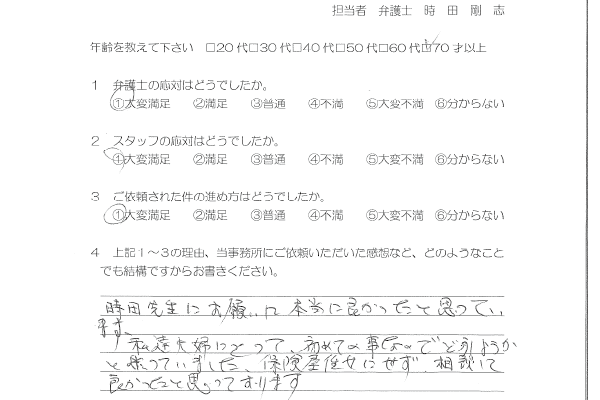 担当者　弁護士　時　田　剛　志
年齢を教えて下さい　□20代□30代□40代□50代□60代☑70才以上
1　弁護士の応対はどうでしたか。
①大変満足　②満足　③普通　④不満　⑤大変不満　⑥分からない
2　スタッフの応対はどうでしたか。
①大変満足　②満足　③普通　④不満　⑤大変不満　⑥分からない
3　ご依頼された件の進め方はどうでしたか。
①大変満足　②満足　③普通　④不満　⑤大変不満　⑥分からない
4　上記1～3の理由、当事務所にご依頼いただいた感想など、どのようなこと
でも結構ですからお書きください。
時田先生にお願いして本当に良かったと思ってい
ます。
私達夫婦にとって、初めての事なのでどうしようか
と迷っていました、保険屋任せにせず、相談して
良かったと思っております